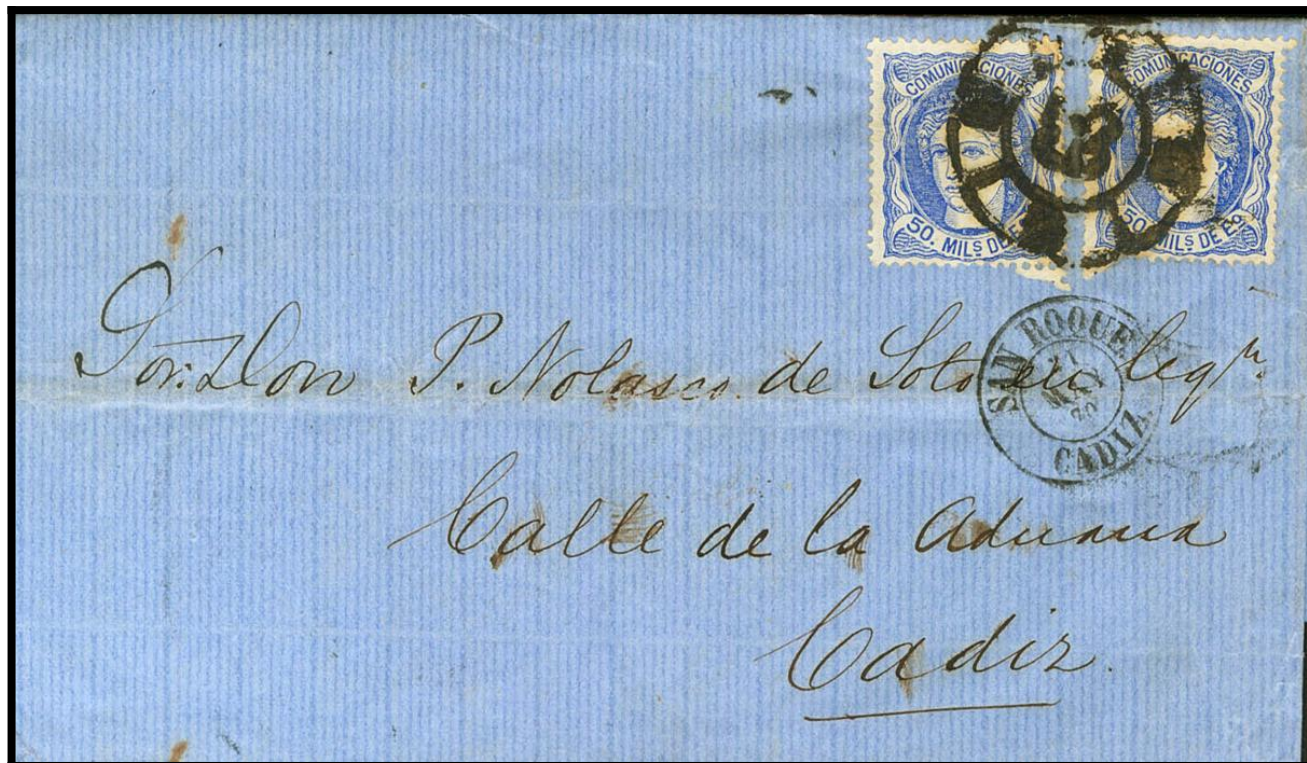 COMUNICACIONES
50. MILS DE
COMUNICACIONES
50. MILS DE Eº
SAN ROQUE
MAY
70
CADIZ
Sor. Don P. Nolasco de Soto en liqn.
Calle de la Aduana
Cadiz.